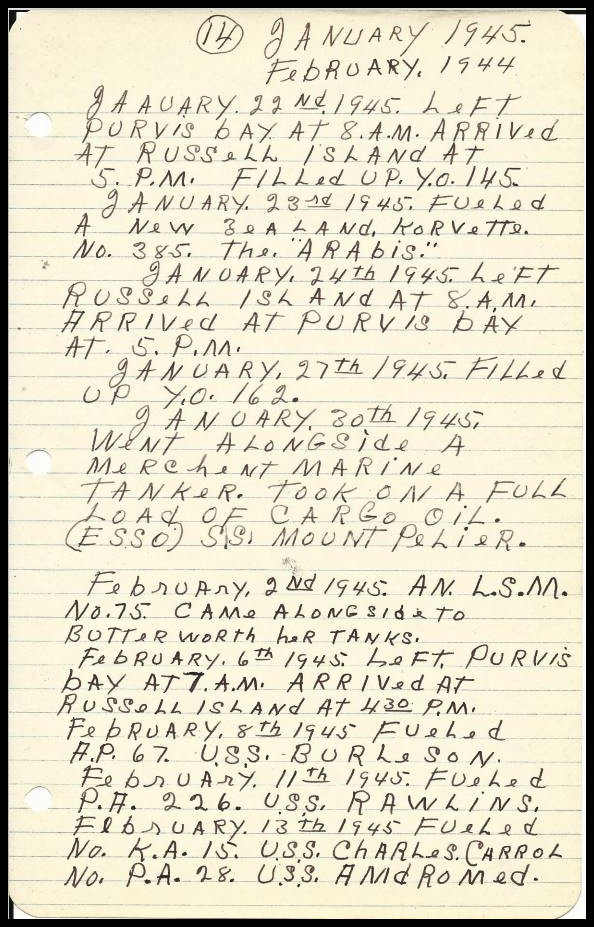 14 JANUARY 1945.
FebRUARY. 1944
JAAUARY. 22nd. 1945. LeFT
PURVis bAY AT 8.A.M. ARRIVed
AT RUSSeLL ISLANd AT
5. P.M. FILLed UP. Y.O. 145.
JANUARY. 23rd 1945. FUeLed
A New ZeALANd, KoRVeTTe.
No. 385. The. "ARAbis."
JANUARY. 24th 1945. LeFT
RUSSeLL ISLANd AT 8.A.M.
ARRIVed AT PURVIS bAY
AT. 5. P.M.
JANUARY, 27th 1945. FILLed
UP Y.O. 162.
JANUARY. 30th 1945.
WeNT ALONGSide A
MeRCheNT MARINe
TANKeR. TooK ON A FULL
LOAd OF CARGo OiL.
(ESSO) S.S. MOUNT PeLieR.
FebRUARy, 2Nd 1945. AN. L.S.M.
No.75. CAMe ALONGSide To
BUTTeRWoRTh heR TANKS.
FebRUARY. 6th 1945. LeFT. PURVis
bAY AT 7.A.M. ARRIVed AT
RUSSeLL ISLANd AT 430 P.M.
FebRUARY. 8th 1945 FUeLed
A.P. 67. U.S.S. BURLeSON.
FebRUARY. 11th 1945. FUeLed
P.A. 226. U.S.S. RAWLINS.
FebRUARY. 13th 1945 FUeLed
No. K.A. 15. U.S.S. ChARLeS. CARROL
No. P.A. 28. U.S.S. AMdRoMed.